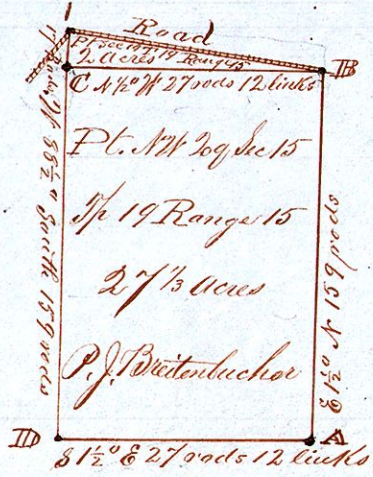 Road
Pt Sec 15 Tp 19 Range 15
2 Acres
B
C N ½° W 27 rods 12 links
Pt. NW Qq Sec 15
Tp 19 Range 15
27 ⅓ Acres
P. J. Breitenbucher
W 88½° South 159 rods
E ½° N 159 rods
D
A
S 1½° E 27 rods 12 links